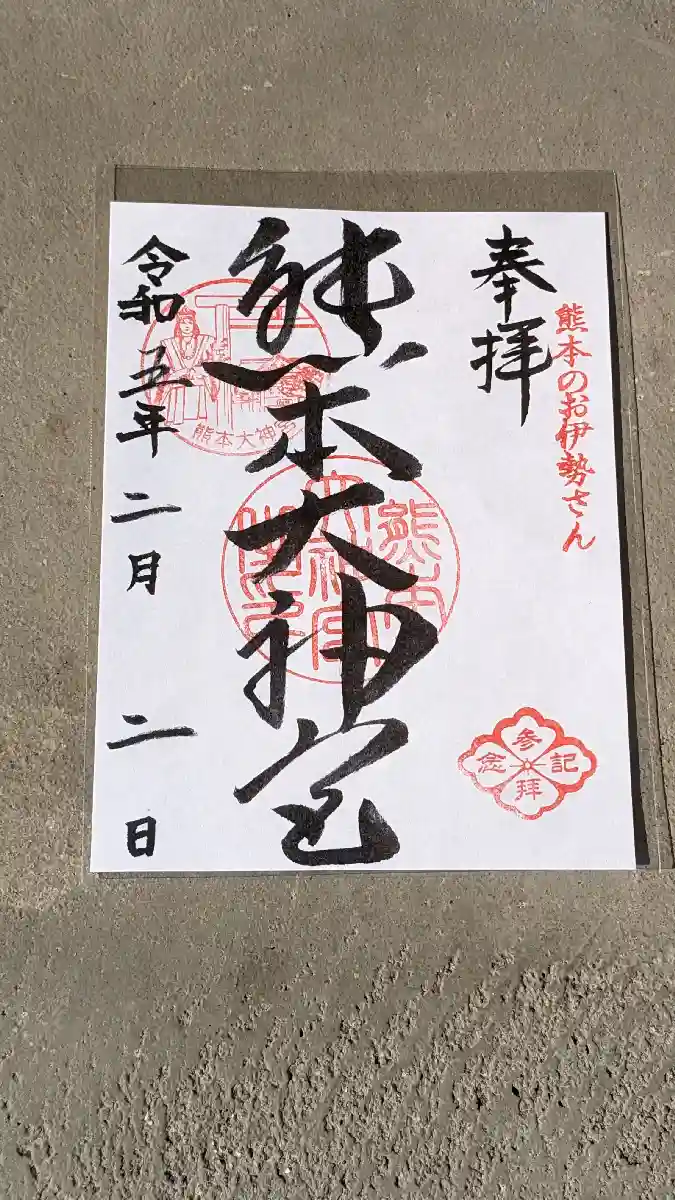 奉拝
熊本のお伊勢さん
熊本大神宮
熊本大神宮
参拝記念
令和五年二月二日
熊本大神宮